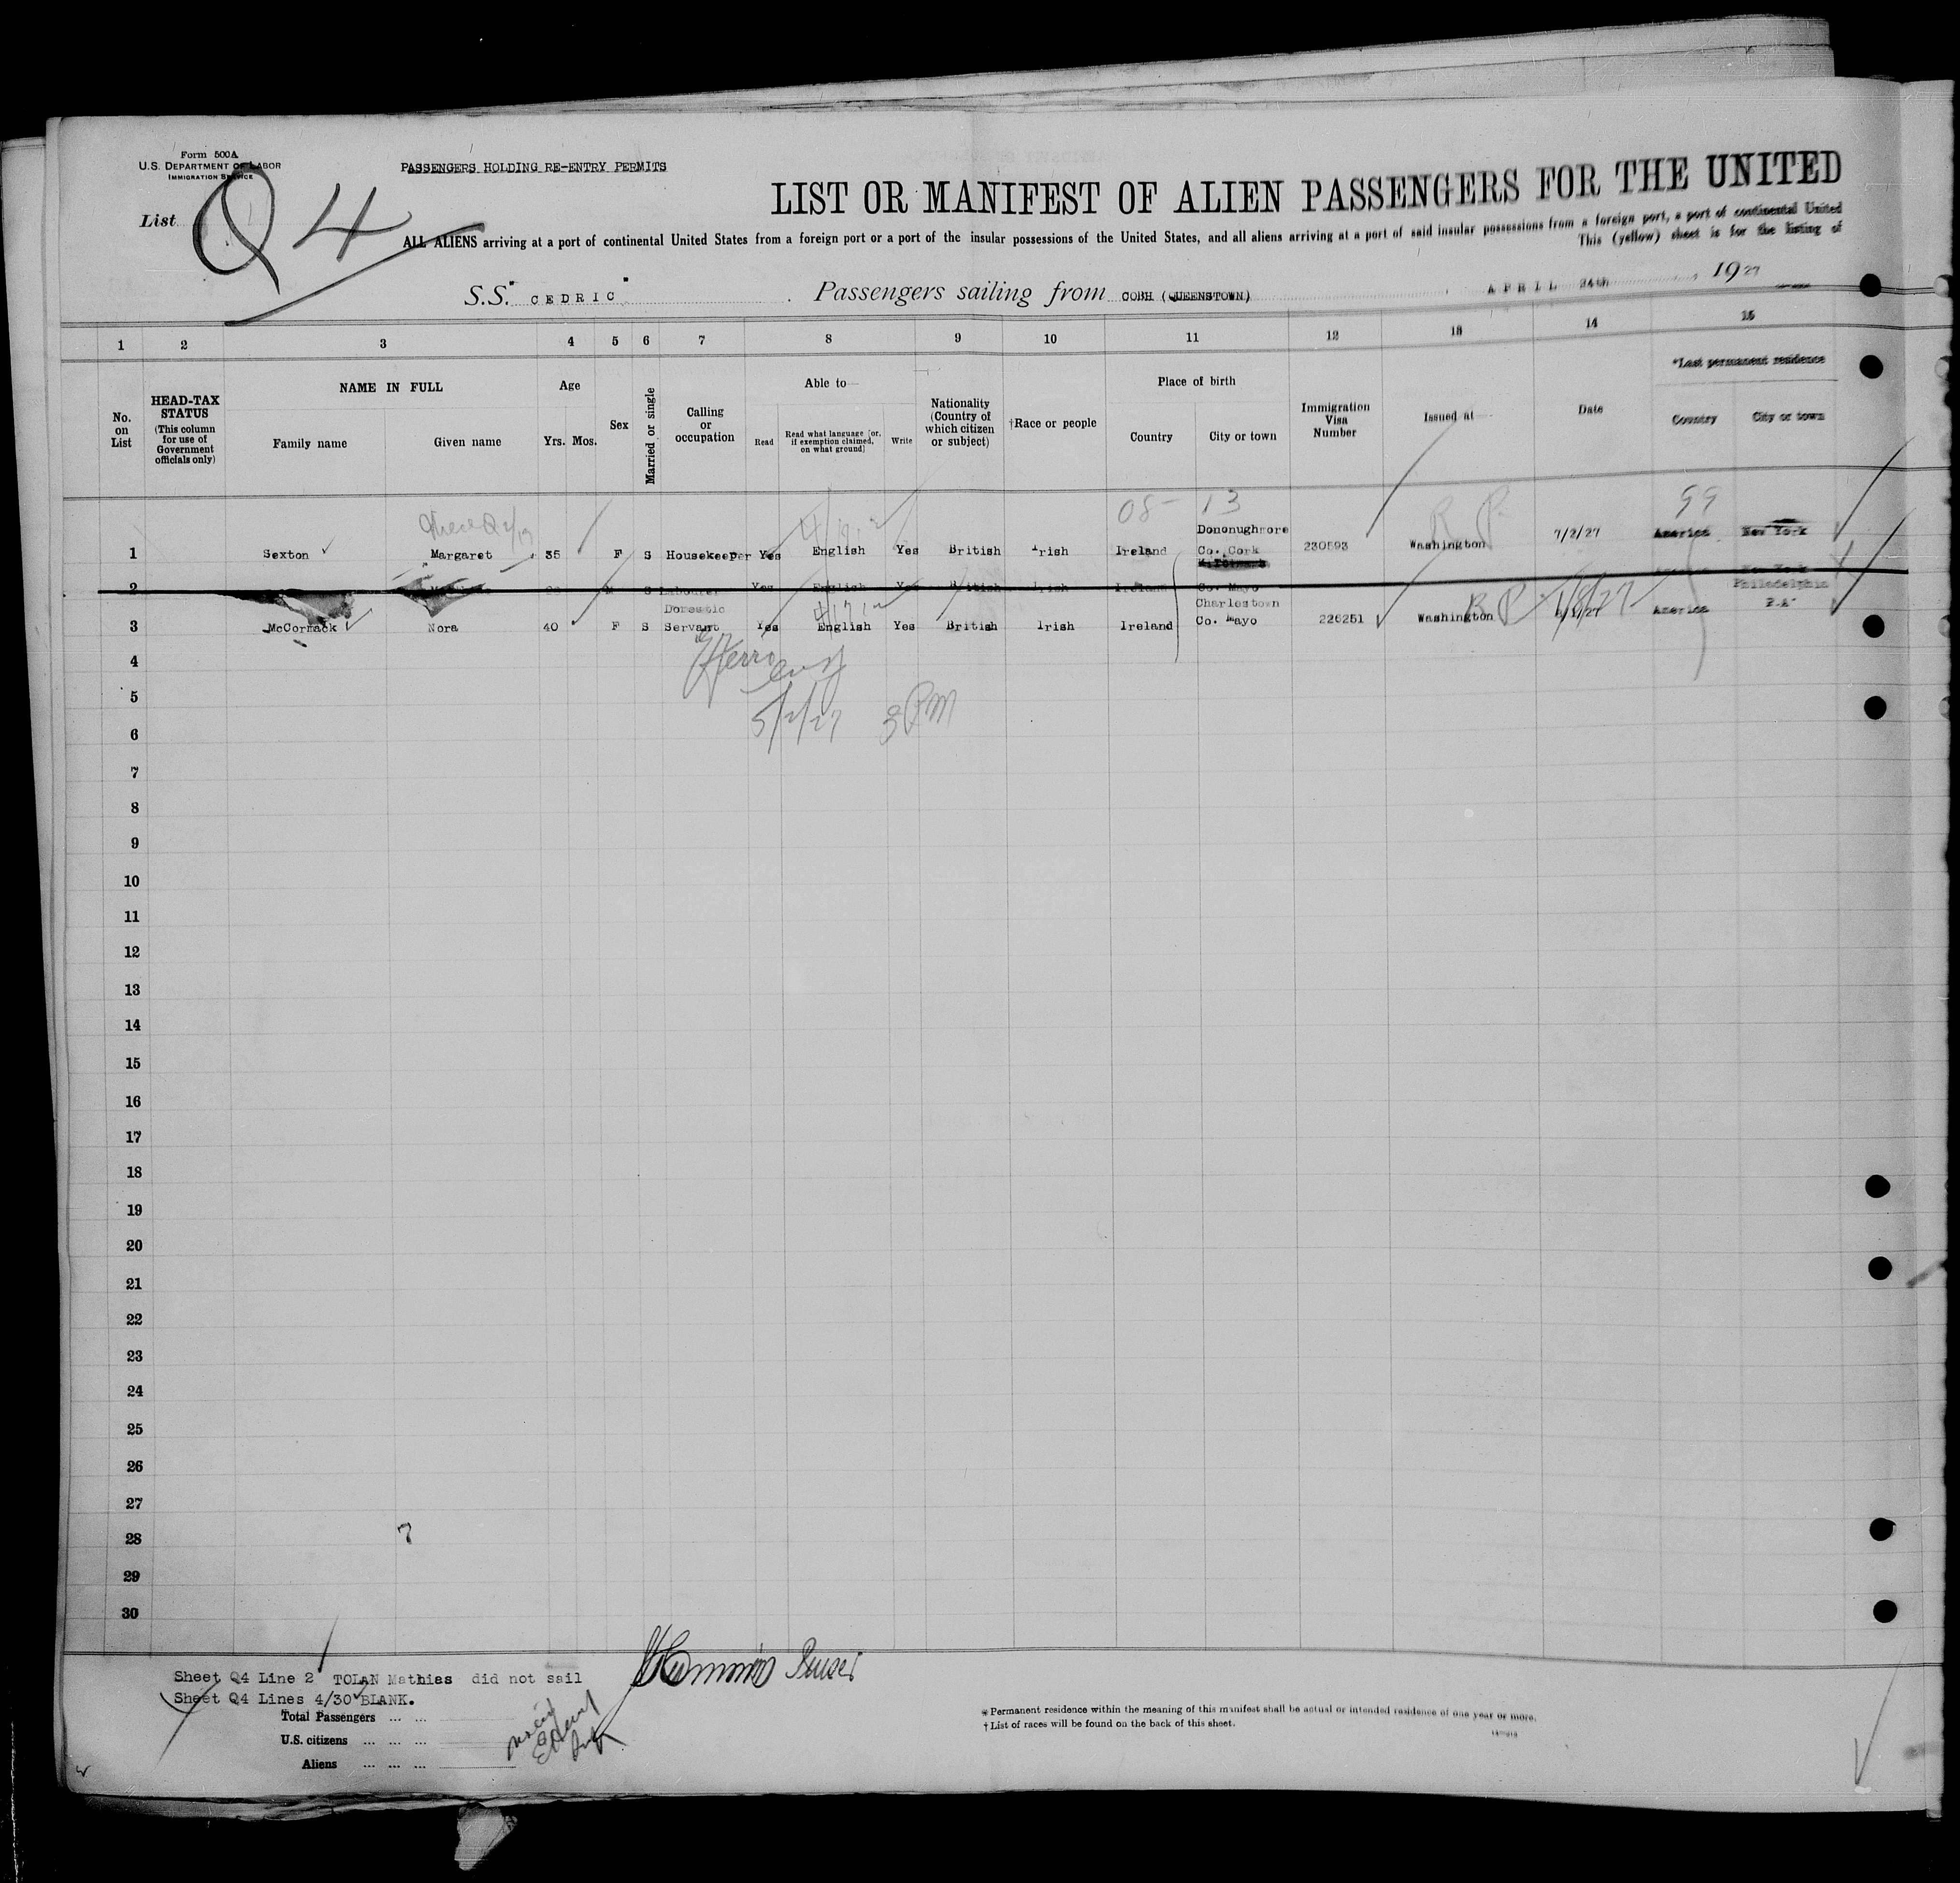 Form 500A
U.S. DEPARTMENT OF LABOR
IMMIGRATION SERVICE
PASSENGERS HOLDING RE-ENTRY PERMITS
List Q 4
LIST OR MANIFEST OF ALIEN PASSENGERS FOR THE UNITED
ALL ALIENS arriving at a port of continental United States from a foreign port or a port of the insular possessions of the United States, and all aliens arriving at a port of said insular possessions from a foreign port, a port of continental United
This (yellow) sheet is for the listing of
S.S. "CEDRIC" Passengers sailing from COBH (QUEENSTOWN) APRIL 24th, 1927
1 2 3 4 5 6 7 8 9 10 11 12 13 14 15
No. on List
HEAD-TAX STATUS (This column for use of Government officials only)
NAME IN FULL
Family name Given name
Age
Yrs. Mos.
Sex
Married or single
Calling or occupation
Able to
Read Read what language [or, if exemption claimed, on what ground] Write
Nationality (Country of which citizen or subject)
†Race or people
Place of birth
Country City or town
Immigration Visa Number
Issued at
Date
*Last permanent residence
Country City or town
08- 13 99
R P
Dononughmore
1 Sexton Margaret 35 F S Housekeeper Yes English Yes British Irish Ireland Co. Cork 230593 Washington 7/2/27 America New York
2 M S Labourer Yes English Yes British Irish Ireland Co. Mayo
Domestic Charlestown Philadelphia
3 McCormack Nora 40 F S Servant Yes English Yes British Irish Ireland Co. Mayo 226251 Washington R P America P.A.
4
5
5/2/27 3 PM
6
7
8
9
10
11
12
13
14
15
16
17
18
19
20
21
22
23
24
25
26
27
28 7
29
30
Sheet Q4 Line 2 TOLAN Mathias did not sail
Sheet Q4 Lines 4/30 BLANK.
Purser
Total Passengers ... ...
U.S. citizens ... ... ...
Aliens ... ... ...
* Permanent residence within the meaning of this manifest shall be actual or intended residence of one year or more.
† List of races will be found on the back of this sheet.